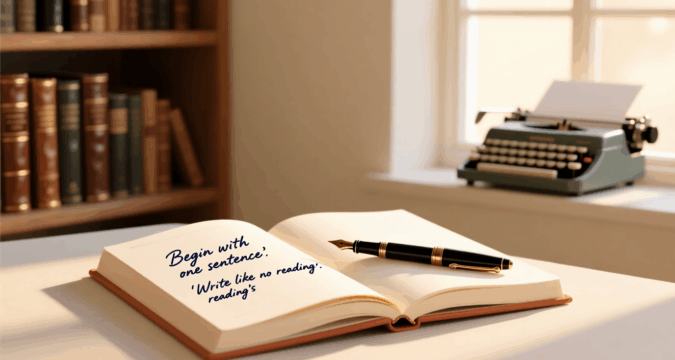 Begin with
one sentence'.
'Write like no reading'.
reading's